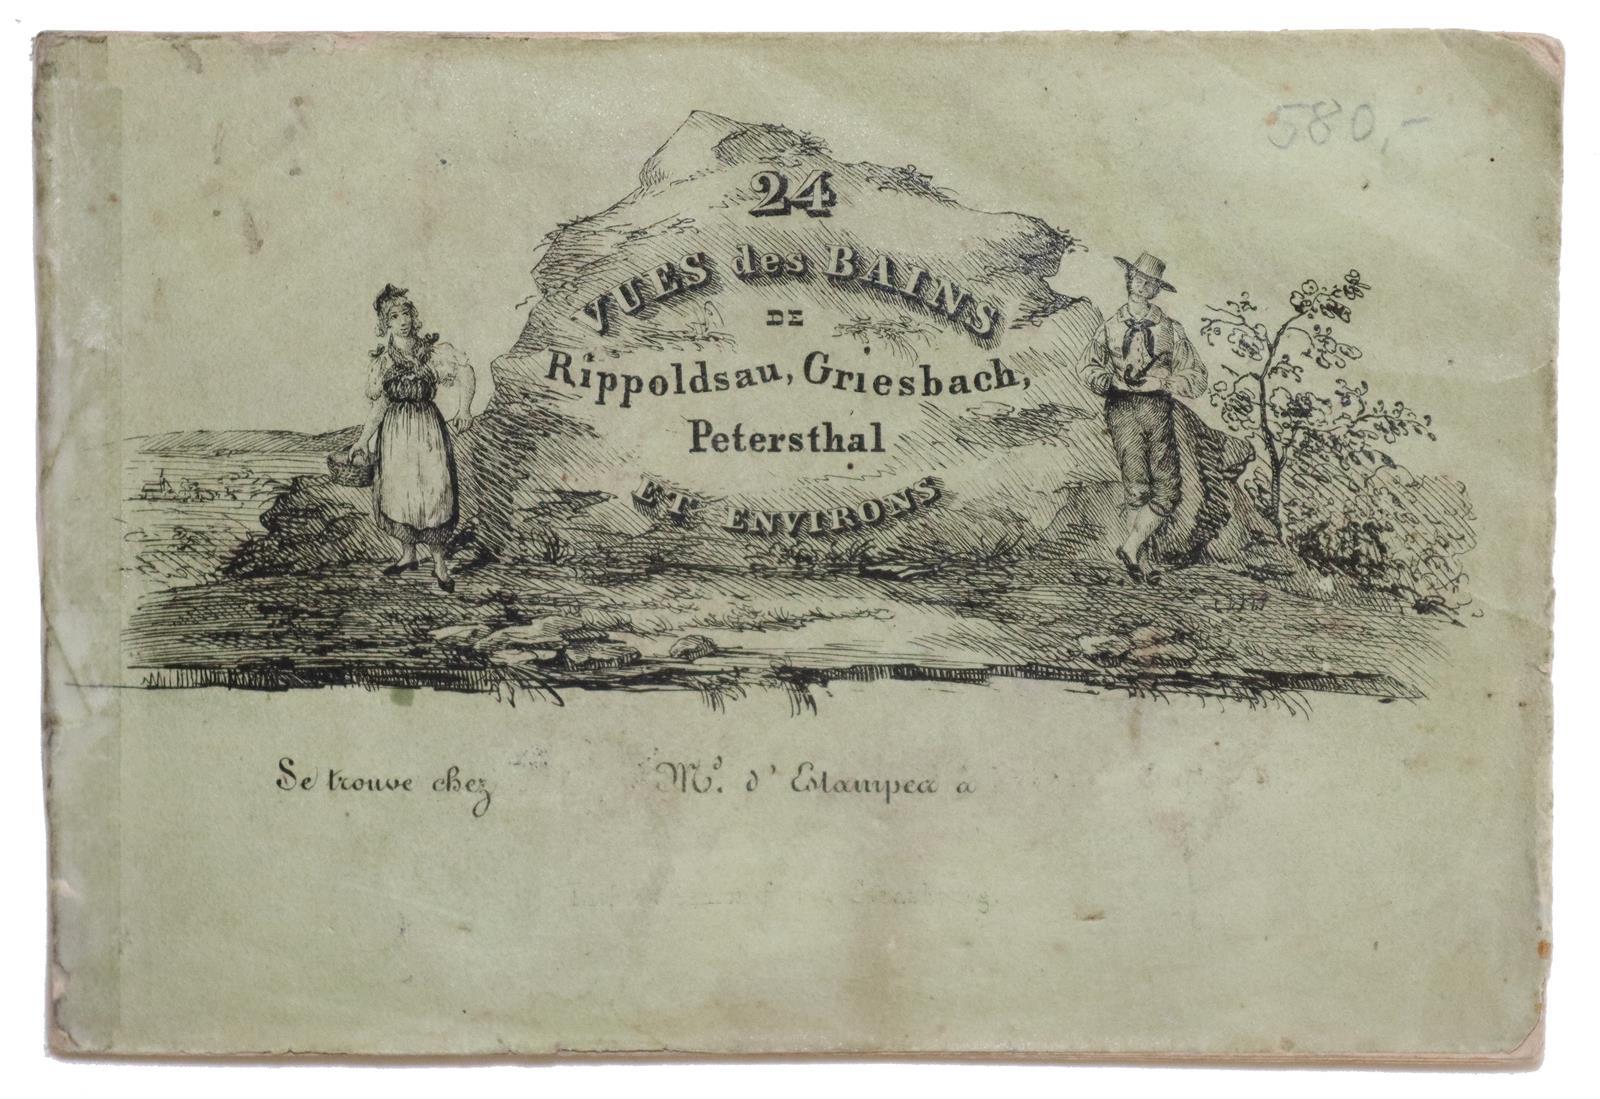 580,-
24
VUES des BAINS
DE
Rippoldsau, Griesbach,
Petersthal
ET ENVIRONS
Se trouve chez Md. d' Estampes a